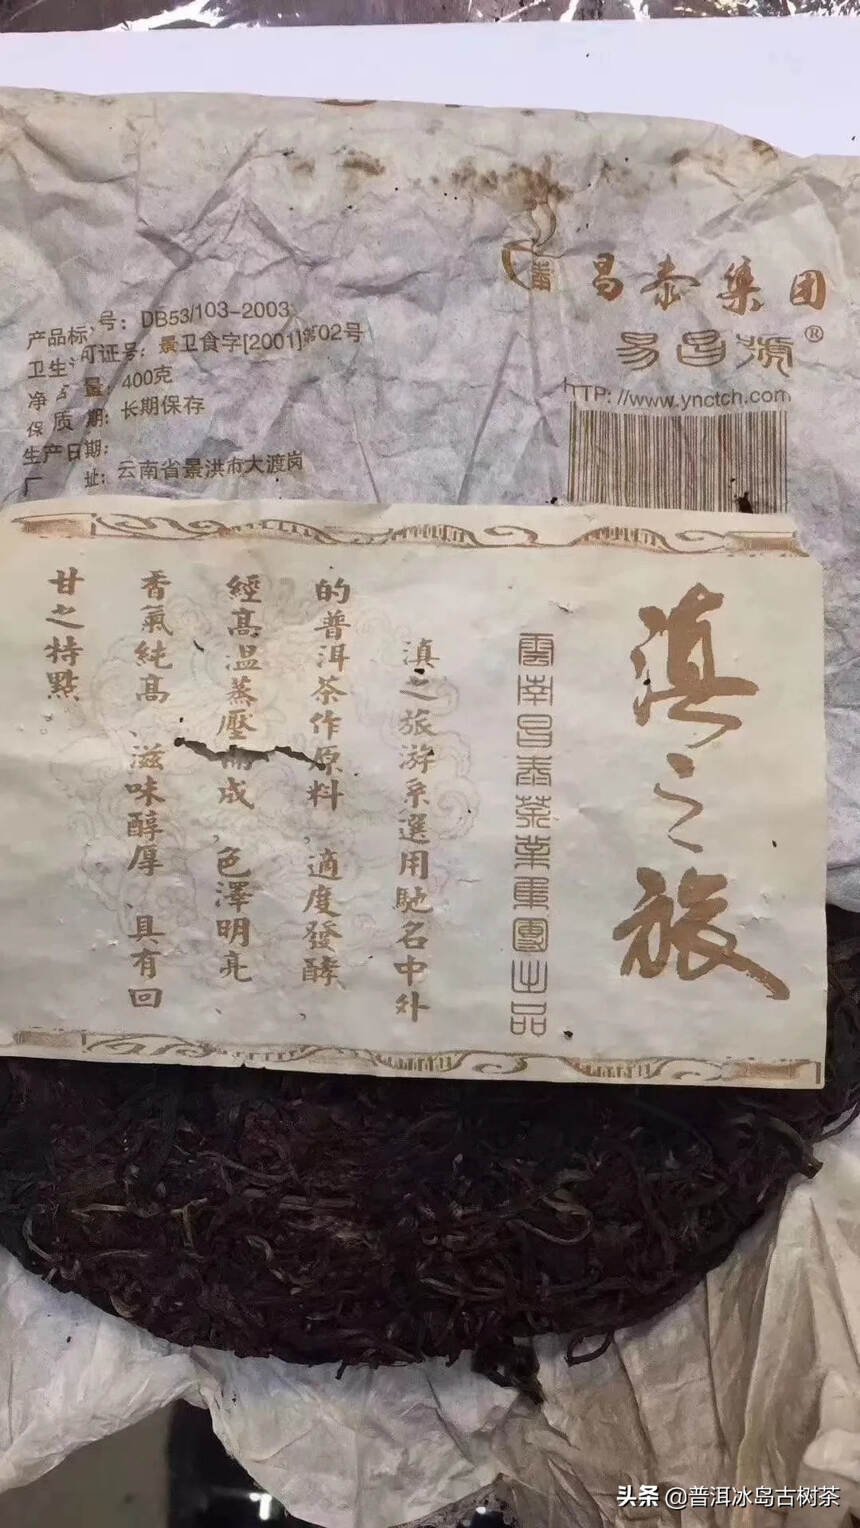 昌泰集团
易昌號®
HTTP://www.ynctch.com
产品标 号：DB53/103-2003
卫生 可证号：景卫食字[2001]第02号
净 量：400克
保质期：长期保存
生产日期：
厂 址：云南省景洪市大渡岗
滇之旅
雲南昌泰茶業集團出品
滇之旅游系選用馳名中外
的普洱茶作原料、適度發酵、
經高温蒸壓而成，色澤明亮、
香氣純高、滋味醇厚、具有回
甘之特點。
头条 @普洱冰岛古树茶